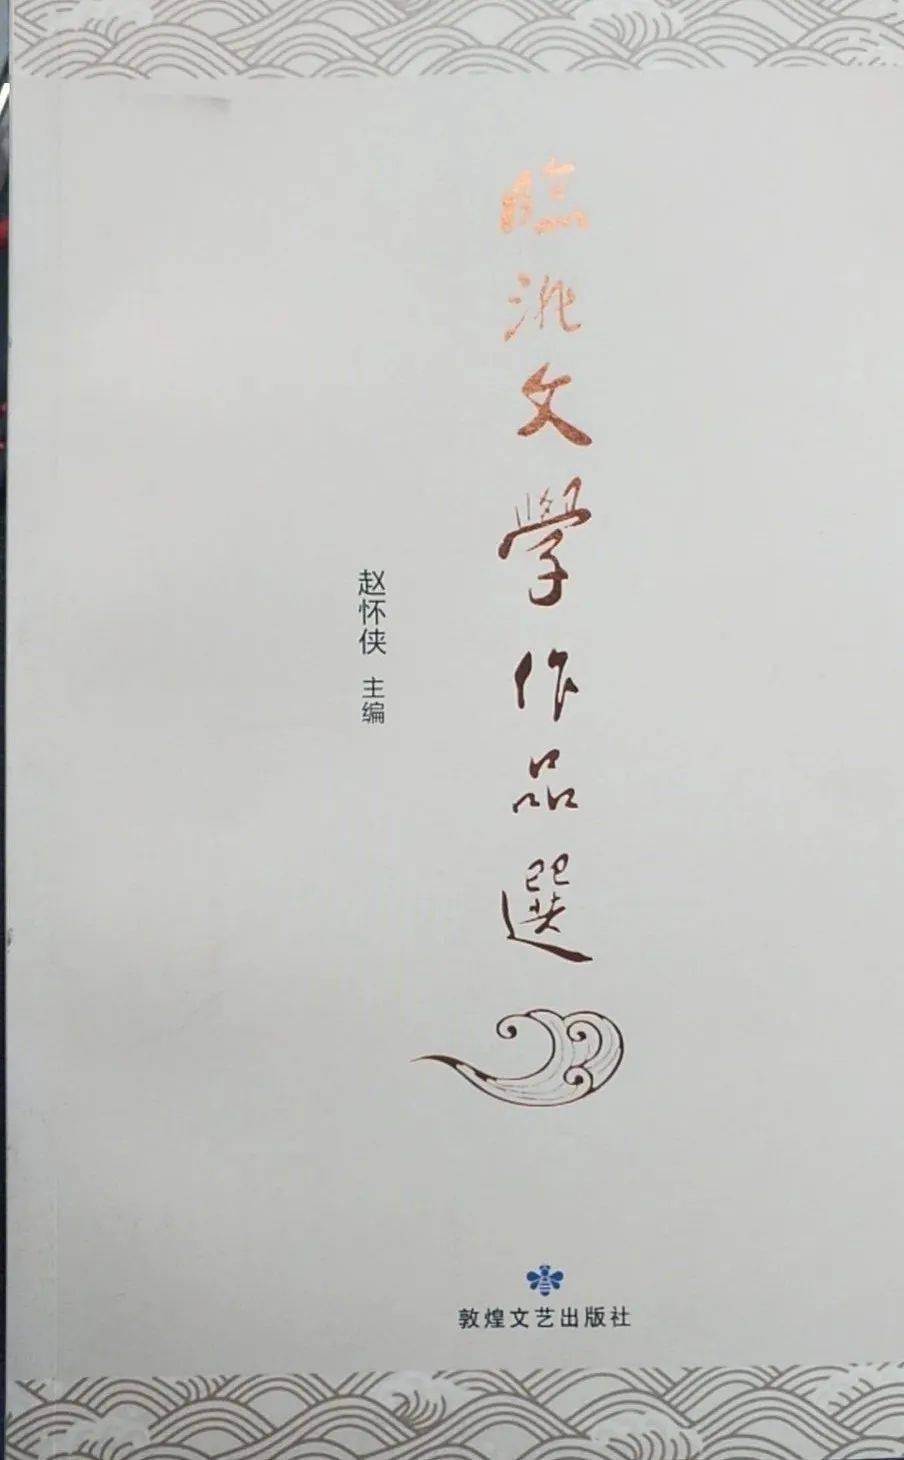 臨洮文學作品選
赵怀侠 主编
敦煌文艺出版社